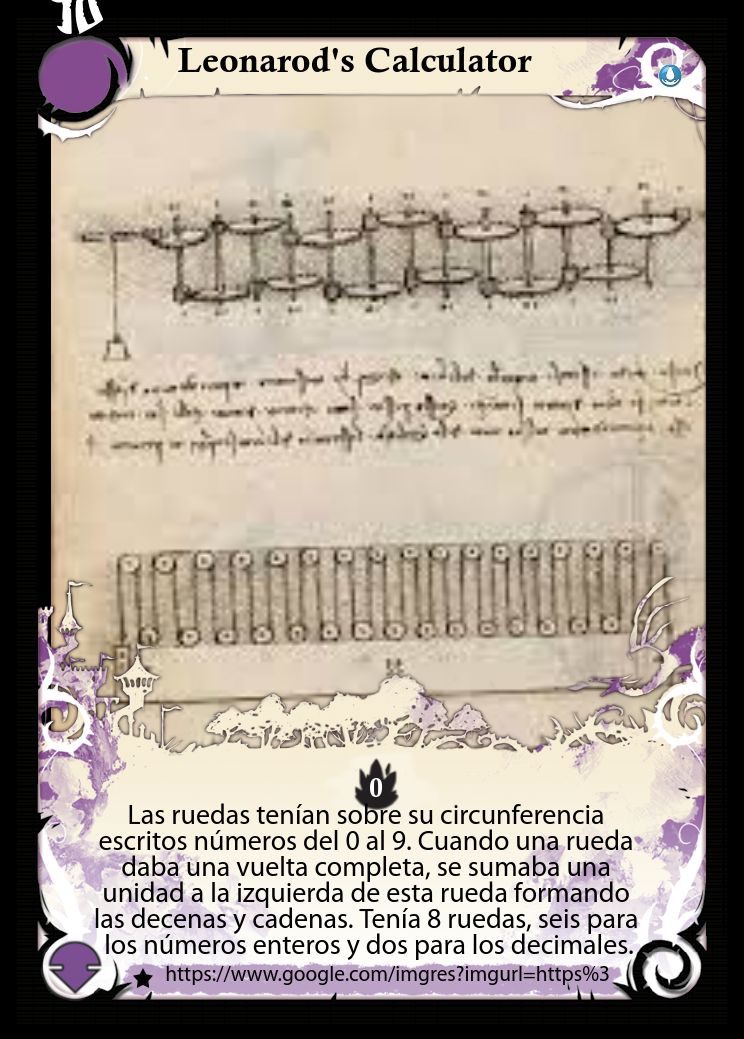 10
Leonarod's Calculator
0
Las ruedas tenían sobre su circunferencia
escritos números del 0 al 9. Cuando una rueda
daba una vuelta completa, se sumaba una
unidad a la izquierda de esta rueda formando
las decenas y cadenas. Tenía 8 ruedas, seis para
los números enteros y dos para los decimales.
https://www.google.com/imgres?imgurl=https%3